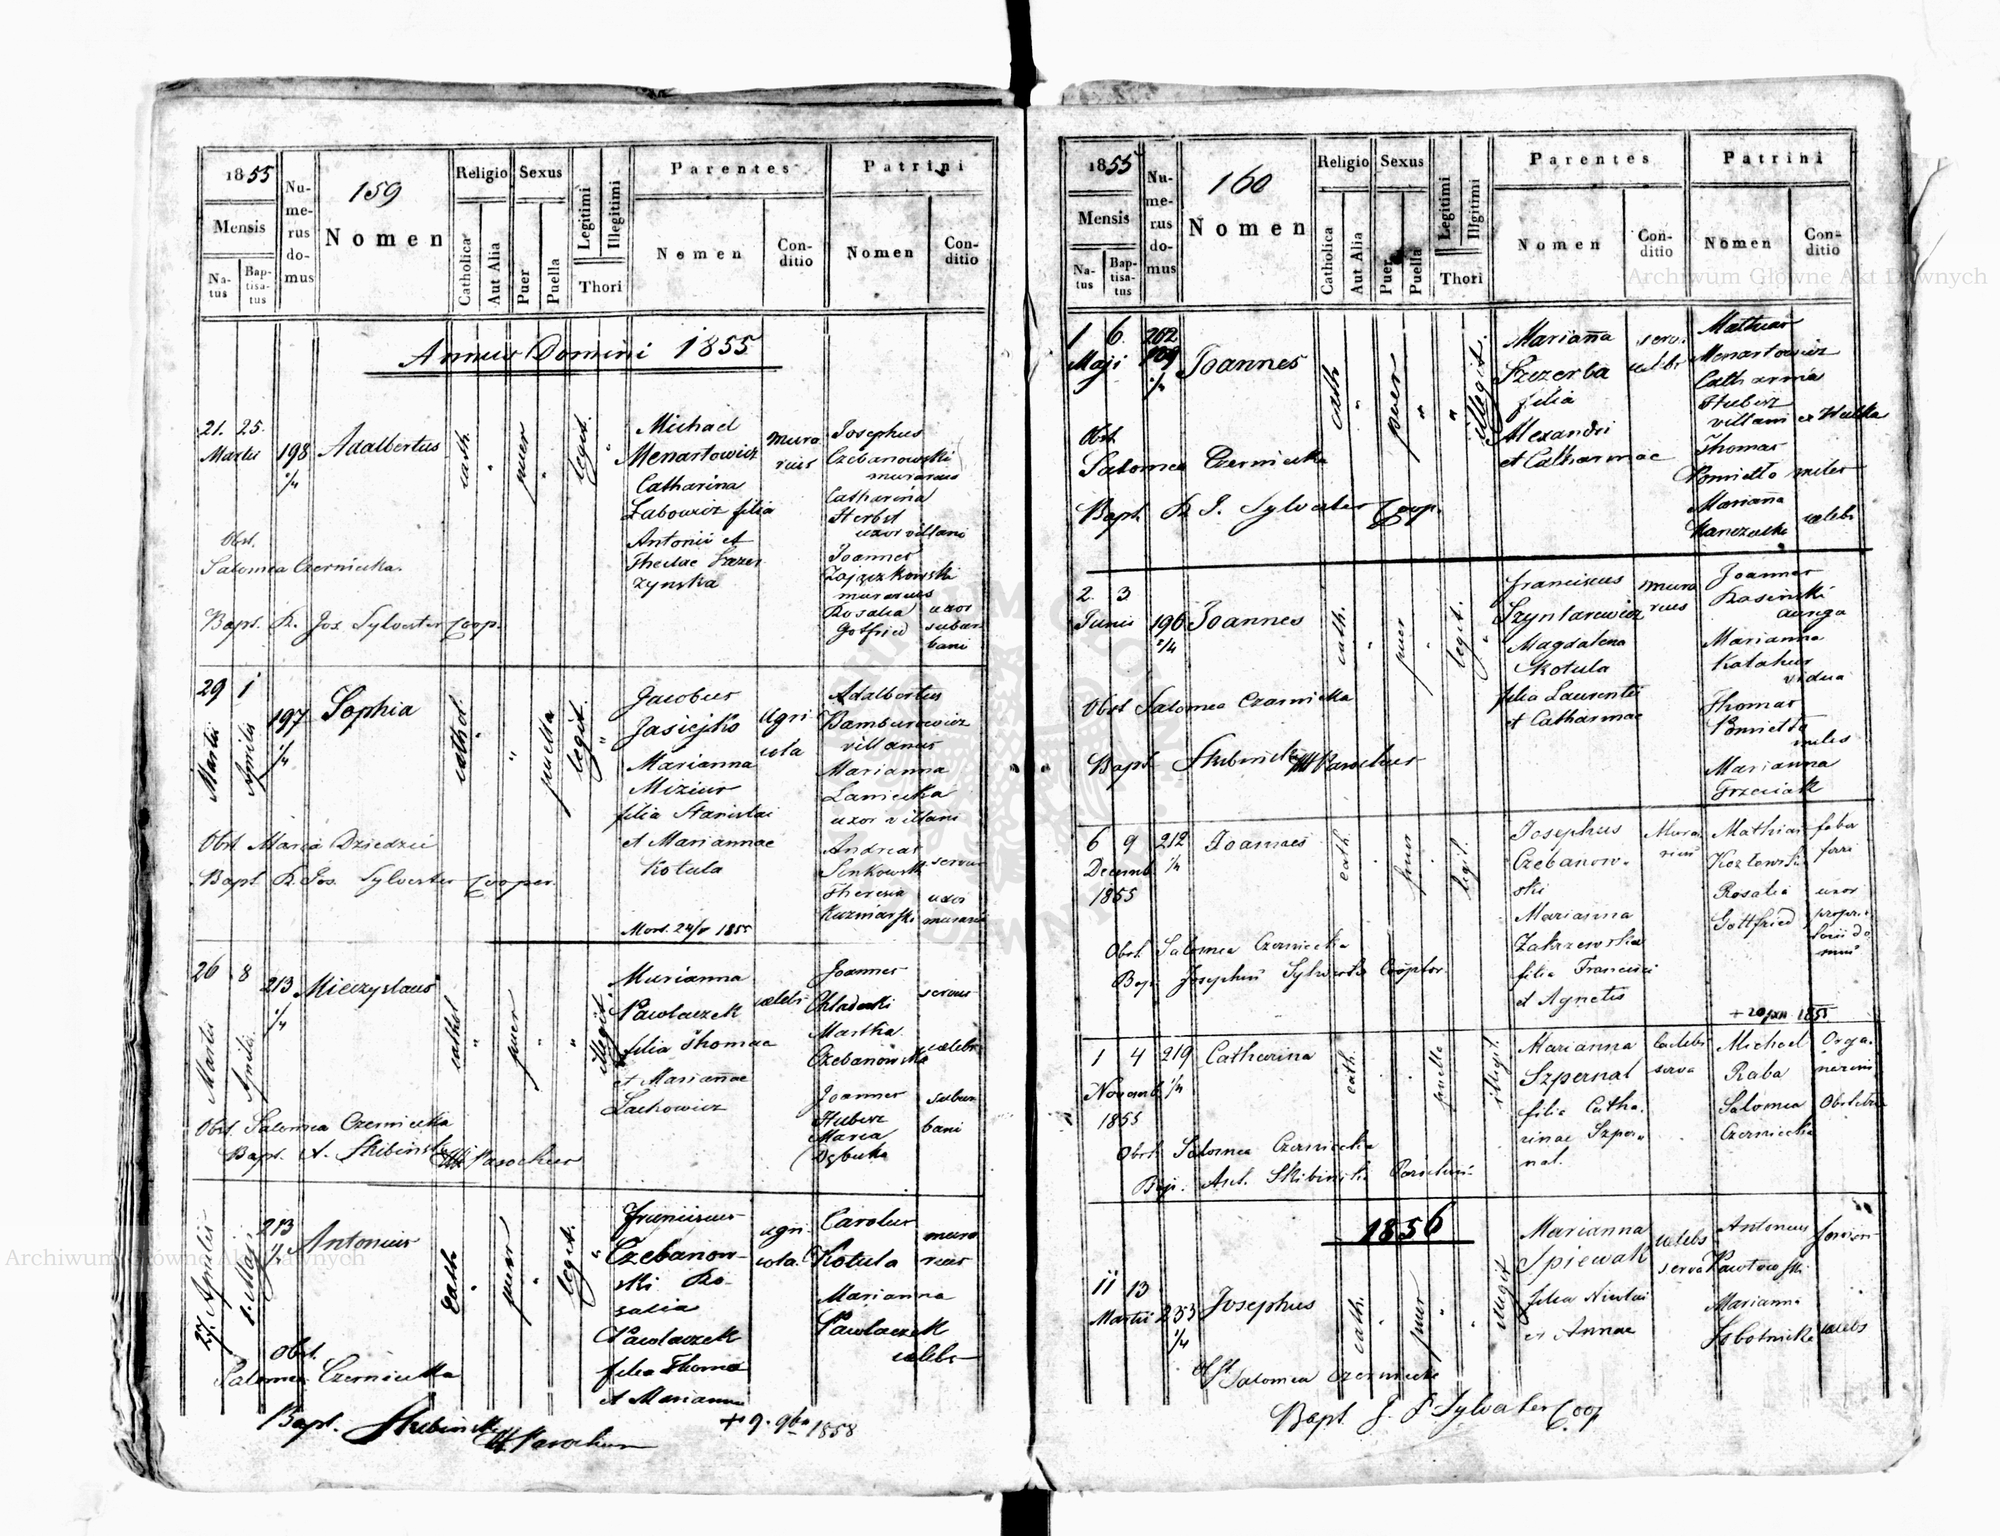 1855
159
Mensis
Natus
Baptisatus
Numerus domus
Nomen
Religio
Catholica
Aut Alia
Sexus
Puer
Puella
Legitimi
Illegitimi
Thori
Parentes
Nomen
Conditio
Patrini
Nomen
Conditio
Annus Domini 1855
21. 25.
Martii
198
1/4
Adalbertus
cath.
puer
legit.
Michael
Menartowicz
Catharina
Antonii et
Theclae
murarius
Josephus
Czebanowski
murarius
Catharina
Herbst
uxor villani
Joannes
Zajączkowski
murarius
Rosalia uxor
Gotfried suburbani
Obst.
Salomea Czerniecka.
Bapt. X. Jos. Sylvester Coop.
29 1
Martii
Aprilis
197
1/4
Sophia
cathol.
puella
legit.
Jacobus
Jasiejko
Marianna
Mizius
filia Stanislai
et Mariannae
Kotula
Mort. 24/V 1855
Agricola
Adalbertus
Bamburowicz
villanus
Marianna
Laniecka
uxor villani
Andreas
Senkowsk servus
Theresia uxor
Kuzniarski murarii
Obst Maria Dziedzic
Bapt. X. Jos. Sylvester Cooper.
26 8
Martii
Aprilis
213
1/4
Mieczyslaus
cathol
puer
illegit.
Marianna
Pawlaczek
filia Thomae
et Mariannae
Lachowicz
celebs
Joannes
servus
Martha
Czebanowska celebs
Joannes
Hubisz
suburbani
Maria
Dębicka
Obst. Salomea Czerniecka
Bapt. A. Skibiński Parochus
27. Aprilis
1. Maji
213
Antonius
cath
puer
legit.
Franciscus
Czebanowski
Rosalia
Pawlaczek
filia Thoma
et Marianna
agricola
Carolus
Kotula
murarius
Marianna
Pawlaczek
celebs
Obst.
Salomea Czerniecka
Bapt. Skibiński Parochus
+ 9. 9br 1858
1855
160
Mensis
Natus
Baptisatus
Numerus domus
Nomen
Religio
Catholica
Aut Alia
Sexus
Puer
Puella
Legitimi
Illegitimi
Thori
Parentes
Nomen
Conditio
Patrini
Nomen
Conditio
1 6.
Maji
Joannes
cath
puer
illegit.
Marianna
Szczerba
filia
Alexandri
et Catharinae
serv.
celebs
Menartowicz
Catharina
Hubisz
villani ex Wulka
Thomas
Pomietło miles
Marianna
celebs
Obst.
Salomea Czerniecka
Bapt. X. J. Sylvester Coop.
2. 3
Junii
196
1/4
Joannes
cath.
puer
legit.
Franciscus
Szyntarewicz
Magdalena
Kotula
filia Laurentii
et Catharinae
murarius
Joannes
Kasinski
auriga
Marianna
vidua
Thomas
Pomietło
miles
Marianna
Grzesiak
Obst Salomea Czarniecka
Bapt Skibiński Parochus
6 9
Decemb
1855
212
1/4
Joannes
cath.
puer
legit.
Josephus
Czebanowski
Marianna
Zakrzewska
filia Francisci
et Agnetis
Murarius
Mathias
Kozłowski
faber ferri
Rosalia uxor
Gottfried proprietarii domus
+ 20 1855
Obst. Salomea Czerniecka
Bap. Josephus Sylwester Cooptor.
1 4
Novemb
1855
219
1/4
Catharina
cath.
puella
illegit.
Marianna
Szpernal
filia Catharinae
Szpernal.
Caelebs
serva
Michael
Raba
Salomea Obstetrix
Czerniecka
Obst. Salomea Czerniecka
Bap. Ant. Skibiński Parochus
1856
11 13
Martii
253
1/4
Josephus
cath.
puer
illegit
Marianna
Spiewak
filia Nicolai
et Annae
celebs
serva
Antonius
Pawłowski
Marianna
celebs
Obst Salomea Czerniecki
Bapt J. Sylvester Coop
Archiwum Główne Akt Dawnych
Archiwum Główne Akt Dawnych